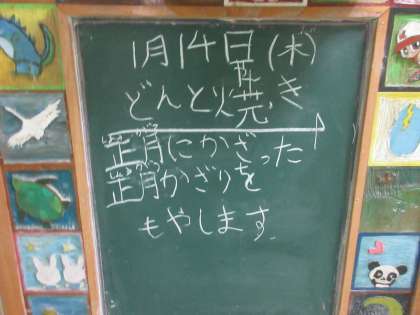 1月14日(木)
どんと焼き
正月にかざった
正月かざりを
もやします